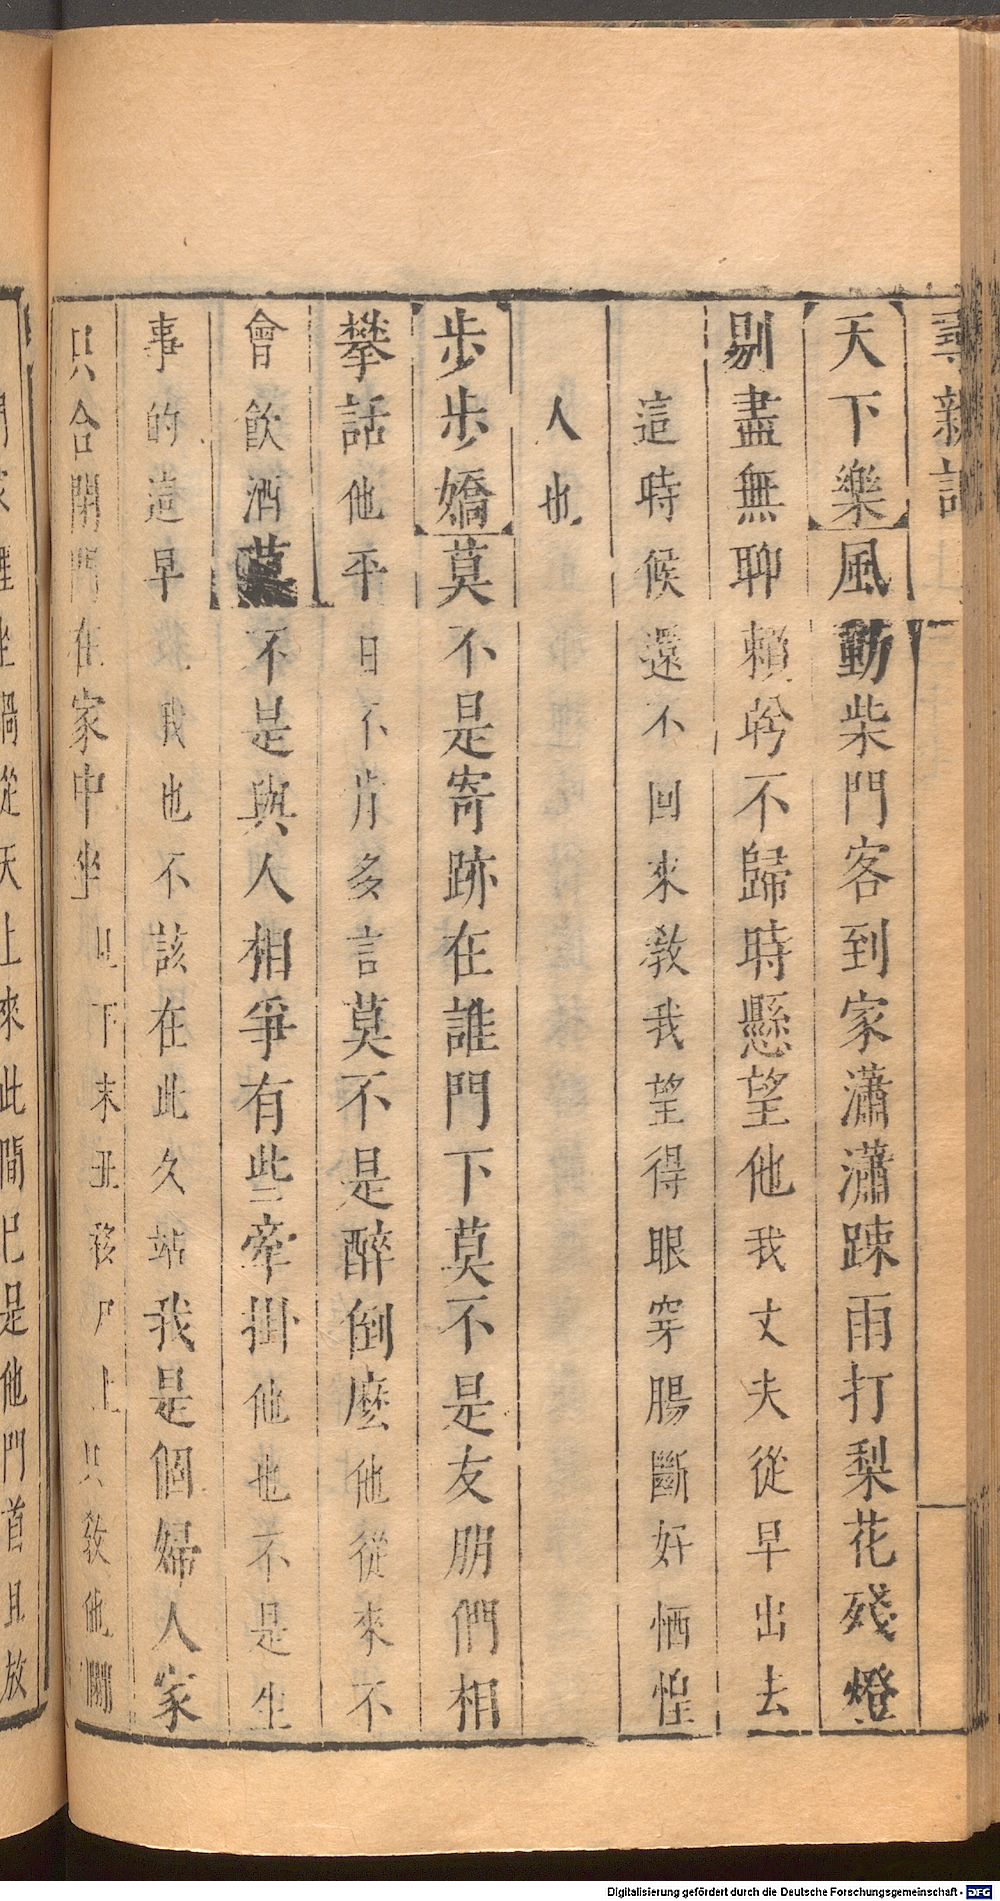 尋親記
天下樂風動柴門客到家瀟瀟踈雨打梨花殘燈
剔盡無聊賴爷不歸時懸望他我丈夫從早出去
這時候還不回來教我望得眼穿腸斷好恓惶
人也
步步嬌莫不是寄跡在誰門下莫不是友朋們相
攀話他平日不肯多言莫不是醉倒麽他從來不
會飲酒莫不是與人相爭有些牽掛他也不是生
事的這早我也不該在此久站我是個婦人家
只合閉門在家中坐下末丑移尸上只教他
門家裡坐禍從天上來此間已是他門首且放
Digitalisierung gefördert durch die Deutsche Forschungsgemeinschaft - DFG